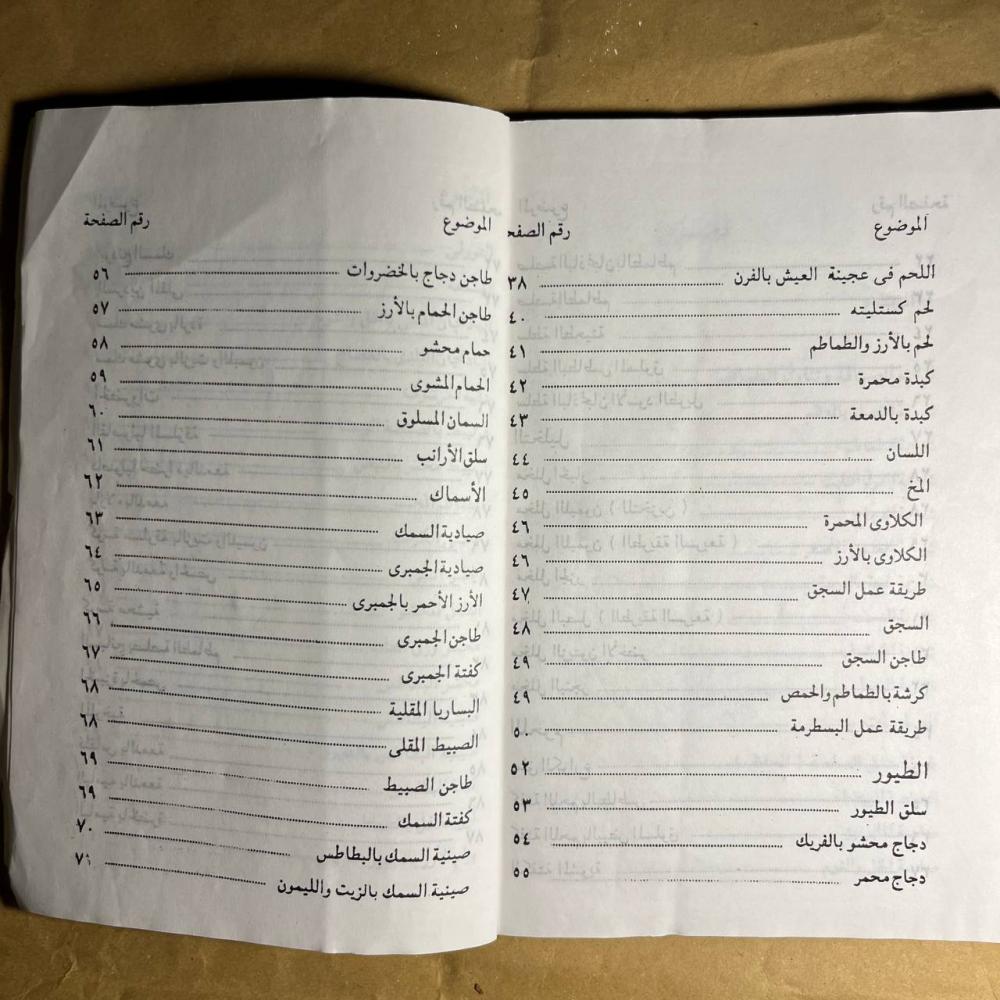 الموضوع رقم الصفحة
اللحم فى عجينة العيش بالفرن ٣٨
لحم كستليته ٤٠
لحم بالأرز والطماطم ٤١
كبدة محمرة ٤٢
كبدة بالدمعة ٤٣
اللسان ٤٤
المخ ٤٥
الكلاوى المحمرة ٤٦
الكلاوى بالأرز ٤٦
طريقة عمل السجق ٤٧
السجق ٤٨
طاجن السجق ٤٩
كرشة بالطماطم والحمص ٤٩
طريقة عمل البسطرمة ٥٠
الطيور ٥٢
سلق الطيور ٥٣
دجاج محشو بالفريك ٥٤
دجاج محمر ٥٥
الموضوع رقم الصفحة
طاجن دجاج بالخضروات ٥٦
طاجن الحمام بالأرز ٥٧
حمام محشو ٥٨
الحمام المشوى ٥٩
السمان المسلوق ٦٠
سلق الأرانب ٦١
الأسماك ٦٢
صيادية السمك ٦٣
صيادية الجمبرى ٦٤
الأرز الأحمر بالجمبرى ٦٥
طاجن الجمبرى ٦٦
كفتة الجمبرى ٦٧
البساريا المقلية ٦٨
الصبيط المقلى ٦٨
طاجن الصبيط ٦٩
كفتة السمك ٦٩
صينية السمك بالبطاطس ٧٠
صينية السمك بالزيت والليمون ٧١